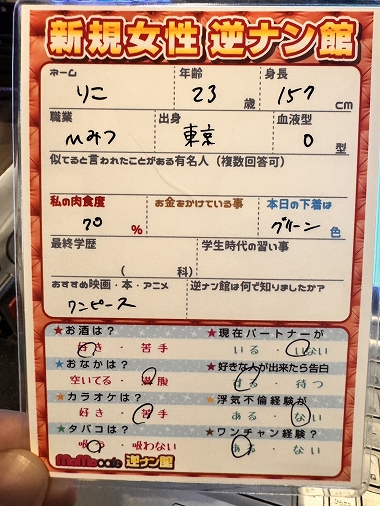 新規女性 逆ナン館
ネーム 年齢 身長
りこ 23 歳 157 cm
職業 出身 血液型
東京 O 型
似てると言われたことがある有名人(複数回答可)
私の肉食度 お金をかけている事 本日の下着は
70 % グリーン 色
最終学歴 学生時代の習い事
( 科)
おすすめ映画・本・アニメ 逆ナン館は何で知りましたか?
ワンピース
★お酒は? ★現在パートナーが
好き・苦手 いる・いない
★おなかは? ★好きな人が出来たら告白
空いてる・満腹 する・待つ
★カラオケは? ★浮気不倫経験が
好き・苦手 ある・ない
★タバコは? ★ワンチャン経験?
吸う・吸わない ある・ない
MoMo cafe 逆ナン館